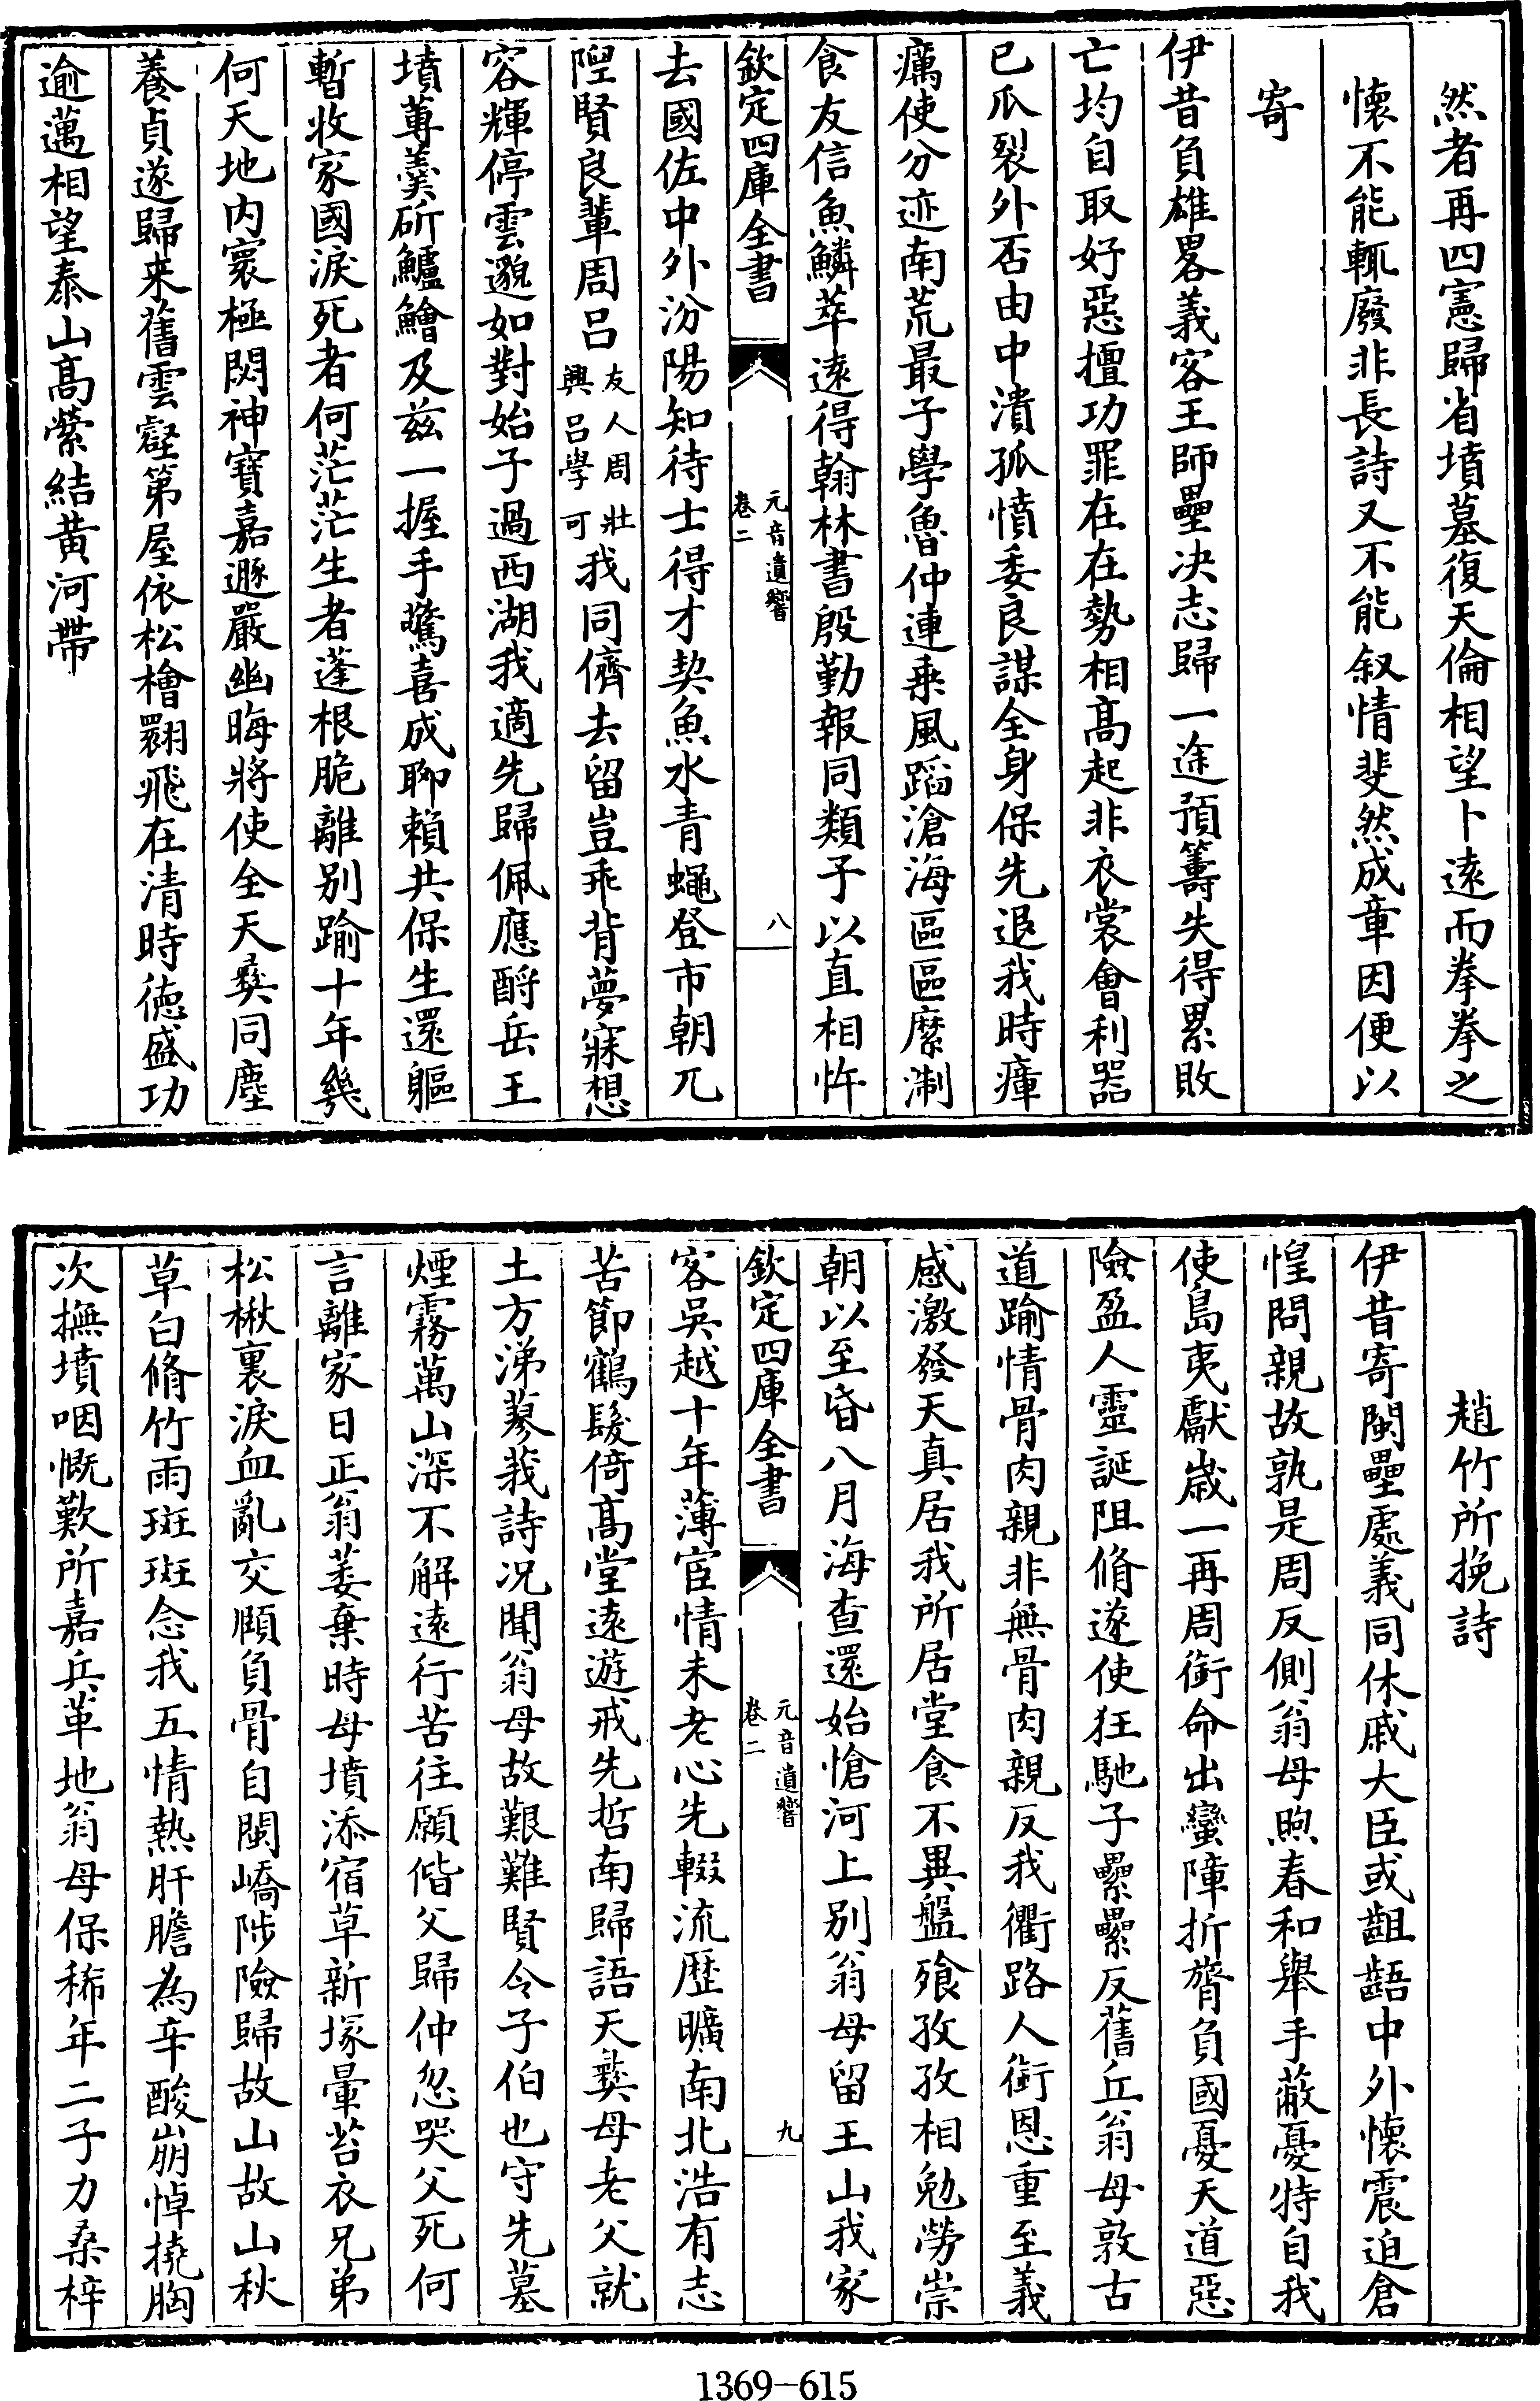 然者再四憲歸省墳墓復天倫相望卜遠而拳拳之
懷不能輒廢非長詩又不能叙情斐然成章因便以
寄
伊昔負雄畧義客王師壘决志歸一途預籌失得累敗
亡均自取好惡擅功罪在在勢相髙起非衣裳會利器
已瓜裂外否由中潰孤憤委良謀全身保先退我時瘴
癘使分迹南荒最子學魯仲連乗風蹈滄海區區縻制
食友信魚鱗萃遠得翰林書殷勤報同類子以直相忤
欽定四庫全書
元音遺響
卷二
八
去國佐中外汾陽知待士得才契魚水青蠅登市朝兀
隉賢良輩周吕
友人周壯
興吕學可
我同儕去留豈乖背夢寐想
容輝停雲邈如對始子過西湖我適先歸佩應酹岳王
墳蓴羹斫鱸鱠及兹一握手驚喜成聊賴共保生還軀
暫收家國淚死者何茫茫生者蓬根脆離别踰十年幾
何天地内寰極閟神寶嘉遯嚴幽晦將使全天彞同塵
養貞遂歸来舊雲壑第屋依松檜翾飛在清時徳盛功
逾邁相望泰山髙縈結黄河帶
趙竹所挽詩
伊昔寄閩壘處義同休戚大臣或齟齬中外懷震迫倉
惶問親故孰是周反側翁母煦春和舉手蔽憂特自我
使島夷獻嵗一再周銜命出蠻障折膂負國憂天道惡
險盈人靈誕阻脩遂使狂馳子纍纍反舊丘翁母敦古
道踰情骨肉親非無骨肉親反我衢路人銜恩重至義
感激發天真居我所居堂食不異盤飱孜孜相勉勞崇
朝以至昏八月海查還始愴河上别翁母留王山我家
欽定四庫全書
元音遺響
卷二
九
客吳越十年薄宦情未老心先輟流歴曠南北浩有志
苦節鶴髮倚髙堂遠遊戒先哲南歸語天彞母老父就
土方涕蓼莪詩况聞翁母故艱難賢令子伯也守先墓
煙霧萬山深不解遠行苦往願偕父歸仲忽哭父死何
言離家日正翁萎棄時母墳添宿草新塚暈苔衣兄弟
松楸裏淚血亂交頤負骨自閩嶠陟險歸故山故山秋
草白脩竹雨斑斑念我五情熱肝膽為辛酸崩悼撓胸
次撫墳咽慨歎所嘉兵革地翁母保稀年二子力桑梓
1369-615